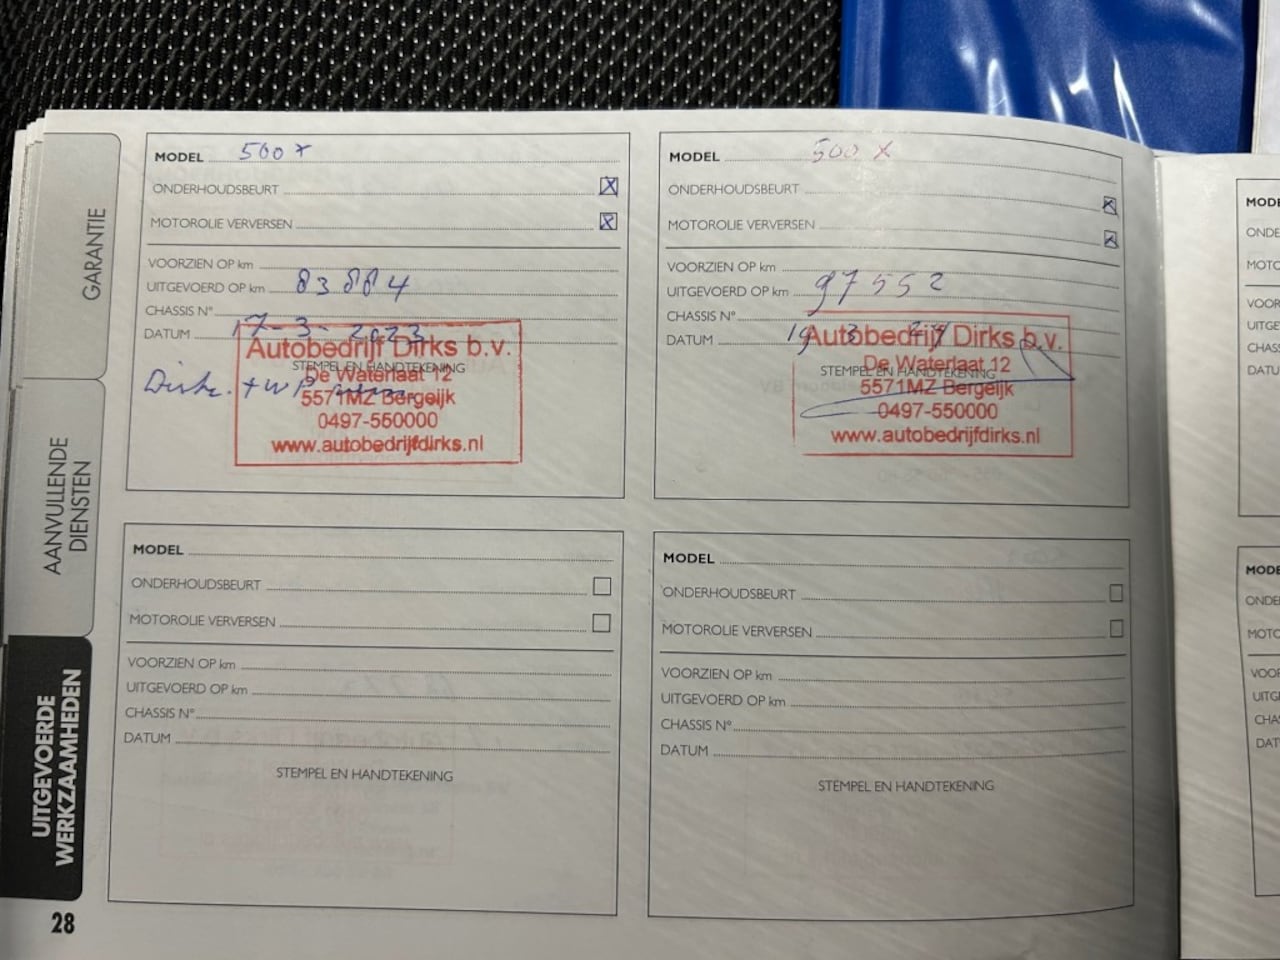 GARANTIE
AANVULLENDE
DIENSTEN
UITGEVOERDE
WERKZAAMHEDEN
28
MODEL 500 X
ONDERHOUDSBEURT X
MOTOROLIE VERVERSEN X
VOORZIEN OP km
UITGEVOERD OP km 83884
CHASSIS N°
DATUM 17-3-2023
STEMPEL EN HANDTEKENING
Autobedrijf Dirks b.v.
De Waterlaat 12
5571MZ Bergeijk
0497-550000
www.autobedrijfdirks.nl
MODEL 500 X
ONDERHOUDSBEURT X
MOTOROLIE VERVERSEN X
VOORZIEN OP km
UITGEVOERD OP km 97552
CHASSIS N°
DATUM 19 3
STEMPEL EN HANDTEKENING
Autobedrijf Dirks b.v.
De Waterlaat 12
5571MZ Bergeijk
0497-550000
www.autobedrijfdirks.nl
MODEL
ONDERHOUDSBEURT
MOTOROLIE VERVERSEN
VOORZIEN OP km
UITGEVOERD OP km
CHASSIS N°
DATUM
STEMPEL EN HANDTEKENING
MODEL
ONDERHOUDSBEURT
MOTOROLIE VERVERSEN
VOORZIEN OP km
UITGEVOERD OP km
CHASSIS N°
DATUM
STEMPEL EN HANDTEKENING